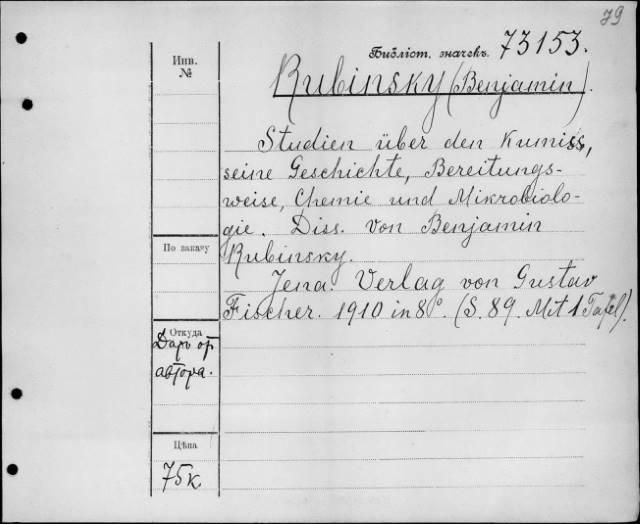 79
Библіот. значекъ. 73153.
Инв.
№
Rubinsky (Benjamin).
Studien über den Kumiss,
seine Geschichte, Bereitungs-
weise, Chemie und Mikrobiolo-
gie. Diss. von Benjamin
Rubinsky.
По заказу
Jena. Verlag von Gustav
Fischer. 1910 in 8°. (S. 89. Mit 1 Tafel).
Откуда
Даръ от
автора.
Цѣна
75к